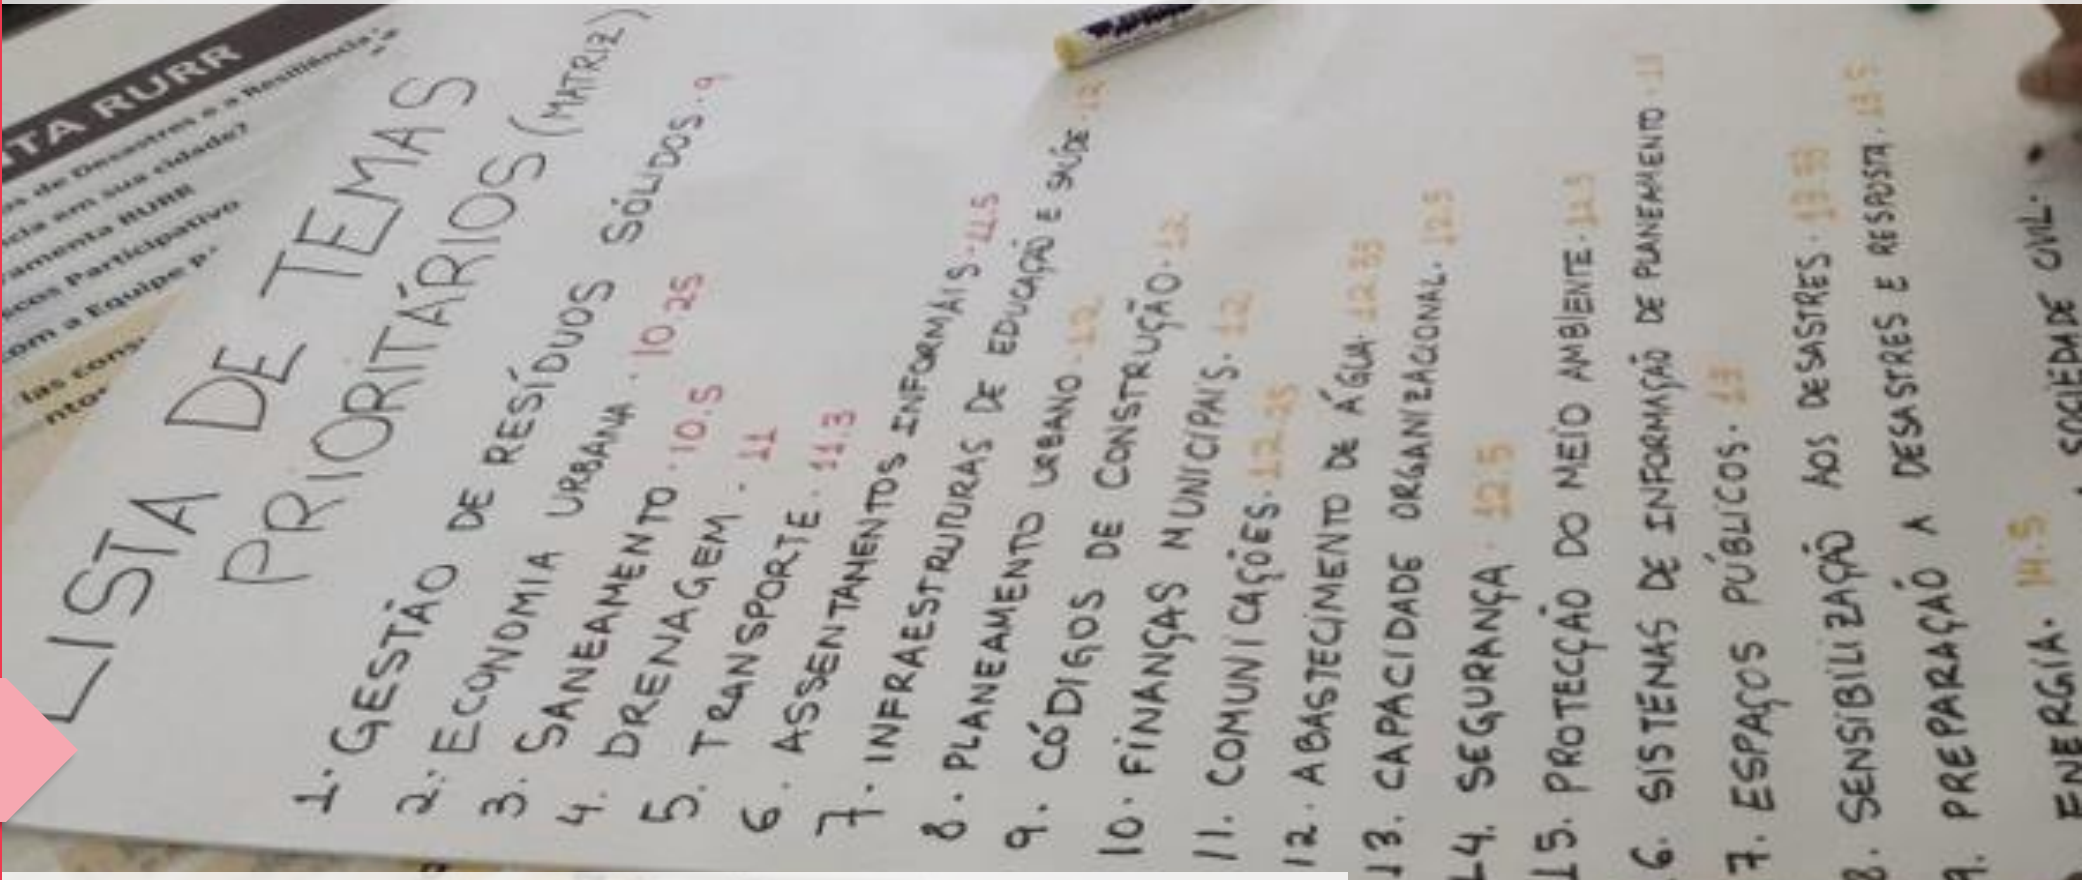 TA RURR
s de Desastres e a Resiliência
cia em sua cidade?
ramenta RURR
scos Participativo
om a Equipe p
las cons
nto
LISTA DE TEMAS
PRIORITÁRIOS (MATRIZ)
1. GESTÃO DE RESÍDUOS SÓLIDOS. 9
2. ECONOMIA URBANA. 10.25
3. SANEAMENTO. 10.5
4. DRENAGEM. 11
5. TRANSPORTE. 11.3
6. ASSENTAMENTOS INFORMAIS. 11.5
7. INFRAESTRUTURAS DE EDUCAÇÃO E SAÚDE. 12
8. PLANEAMENTO URBANO. 12
9. CÓDIGOS DE CONSTRUÇÃO. 12
10. FINANÇAS MUNICIPAIS. 12
11. COMUNICAÇÕES. 12.25
12. ABASTECIMENTO DE ÁGUA. 12.33
13. CAPACIDADE ORGANIZACIONAL. 12.5
14. SEGURANÇA. 12.5
15. PROTECÇÃO DO MEIO AMBIENTE.
6. SISTEMAS DE INFORMAÇÃO DE PLANEAMENTO.
7. ESPAÇOS PÚBLICOS. 13
8. SENSIBILIZAÇÃO AOS DESASTRES. 13.33
9. PREPARAÇÃO A DESASTRES E RESPOSTA. 13.5
ENERGIA. 14.5
SOCIEDADE CIVIL.